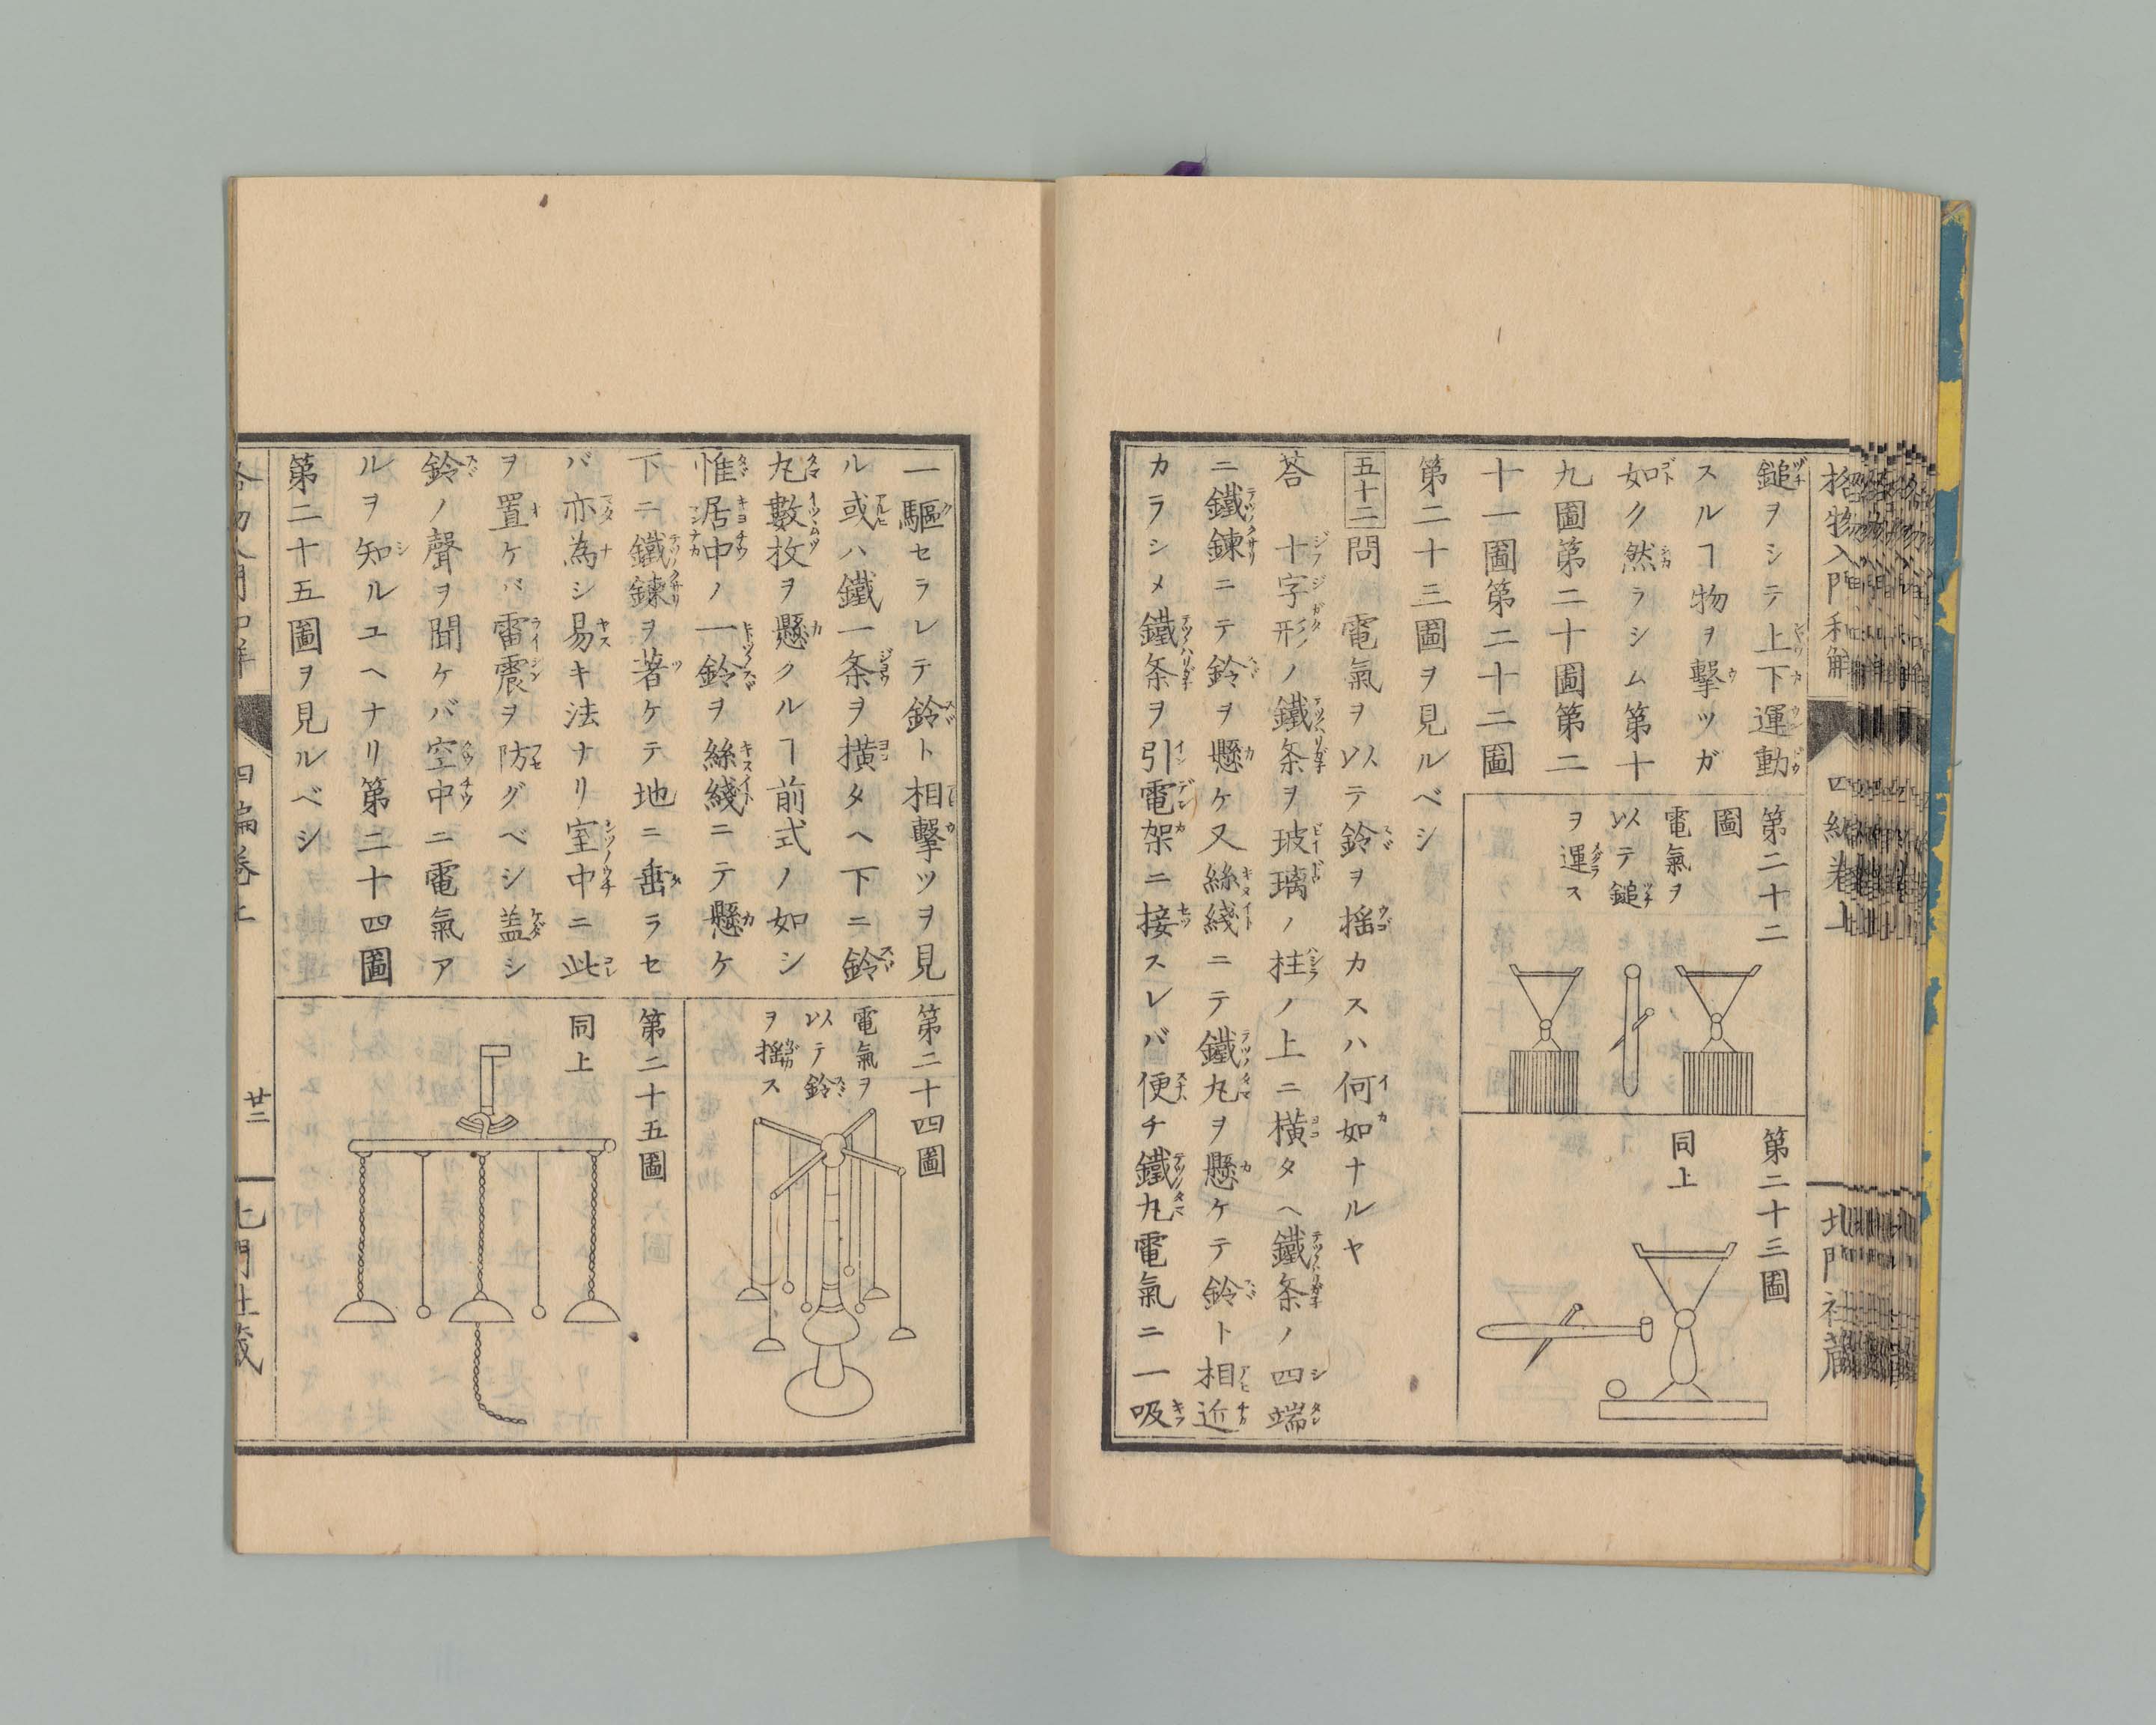 格物入門和解
四編卷上
北門社蔵
鎚ヲシテ上下運動
スルヿ物ヲ擊ツガ
如ク然ラシム第十
九圖第二十圖第二
十一圖第二十二圖
第二十三圖ヲ見ルベシ
第二十二
圖
電氣ヲ
以テ鎚
ヲ運ス
第二十三圖
同上
五十二問 電氣ヲ以テ鈴ヲ揺カスハ何如ナルヤ
荅 十字形ノ鐵条ヲ玻璃ノ柱ノ上ニ橫タヘ鐵条ノ四端
ニ鐵鍊ニテ鈴ヲ懸ケ又絲綫ニテ鐵丸ヲ懸ケテ鈴ト相近
カラシメ鐵条ヲ引電架ニ接スレバ便チ鐵丸電氣ニ一吸
一驅セラレテ鈴ト相擊ツヲ見
ル或ハ鐵一条ヲ橫タヘ下ニ鈴
丸數枚ヲ懸クルヿ前式ノ如シ
惟居中ノ一鈴ヲ絲綫ニテ懸ケ
下ニ鐵鍊ヲ著ケテ地ニ垂ラセ
バ亦為シ易キ法ナリ室中ニ此
ヲ置ケバ雷震ヲ防グベシ盖シ
鈴ノ聲ヲ聞ケバ空中ニ電氣ア
ルヲ知ルユヘナリ第二十四圖
第二十五圖ヲ見ルベシ
第二十四圖
電氣ヲ
以テ鈴
ヲ揺ス
第二十五圖
同上
格物入門和解
四編卷上
廿二
北門社蔵